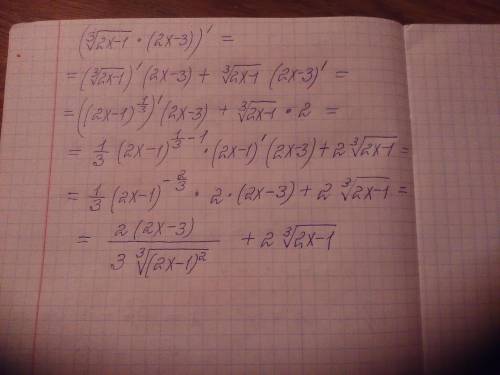 (∛(2x-1) · (2x-3))′ =
= (∛(2x-1))′ (2x-3) + ∛(2x-1) (2x-3)′ =
= ((2x-1)^(1/3))′ (2x-3) + ∛(2x-1) · 2 =
= 1/3 (2x-1)^(1/3 - 1) · (2x-1)′ (2x-3) + 2 ∛(2x-1) =
= 1/3 (2x-1)^(-2/3) · 2 · (2x-3) + 2 ∛(2x-1) =
= 2(2x-3) / (3 ∛((2x-1)²)) + 2 ∛(2x-1)